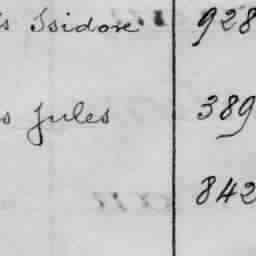 s Isidore. 928
s Jules 389
842